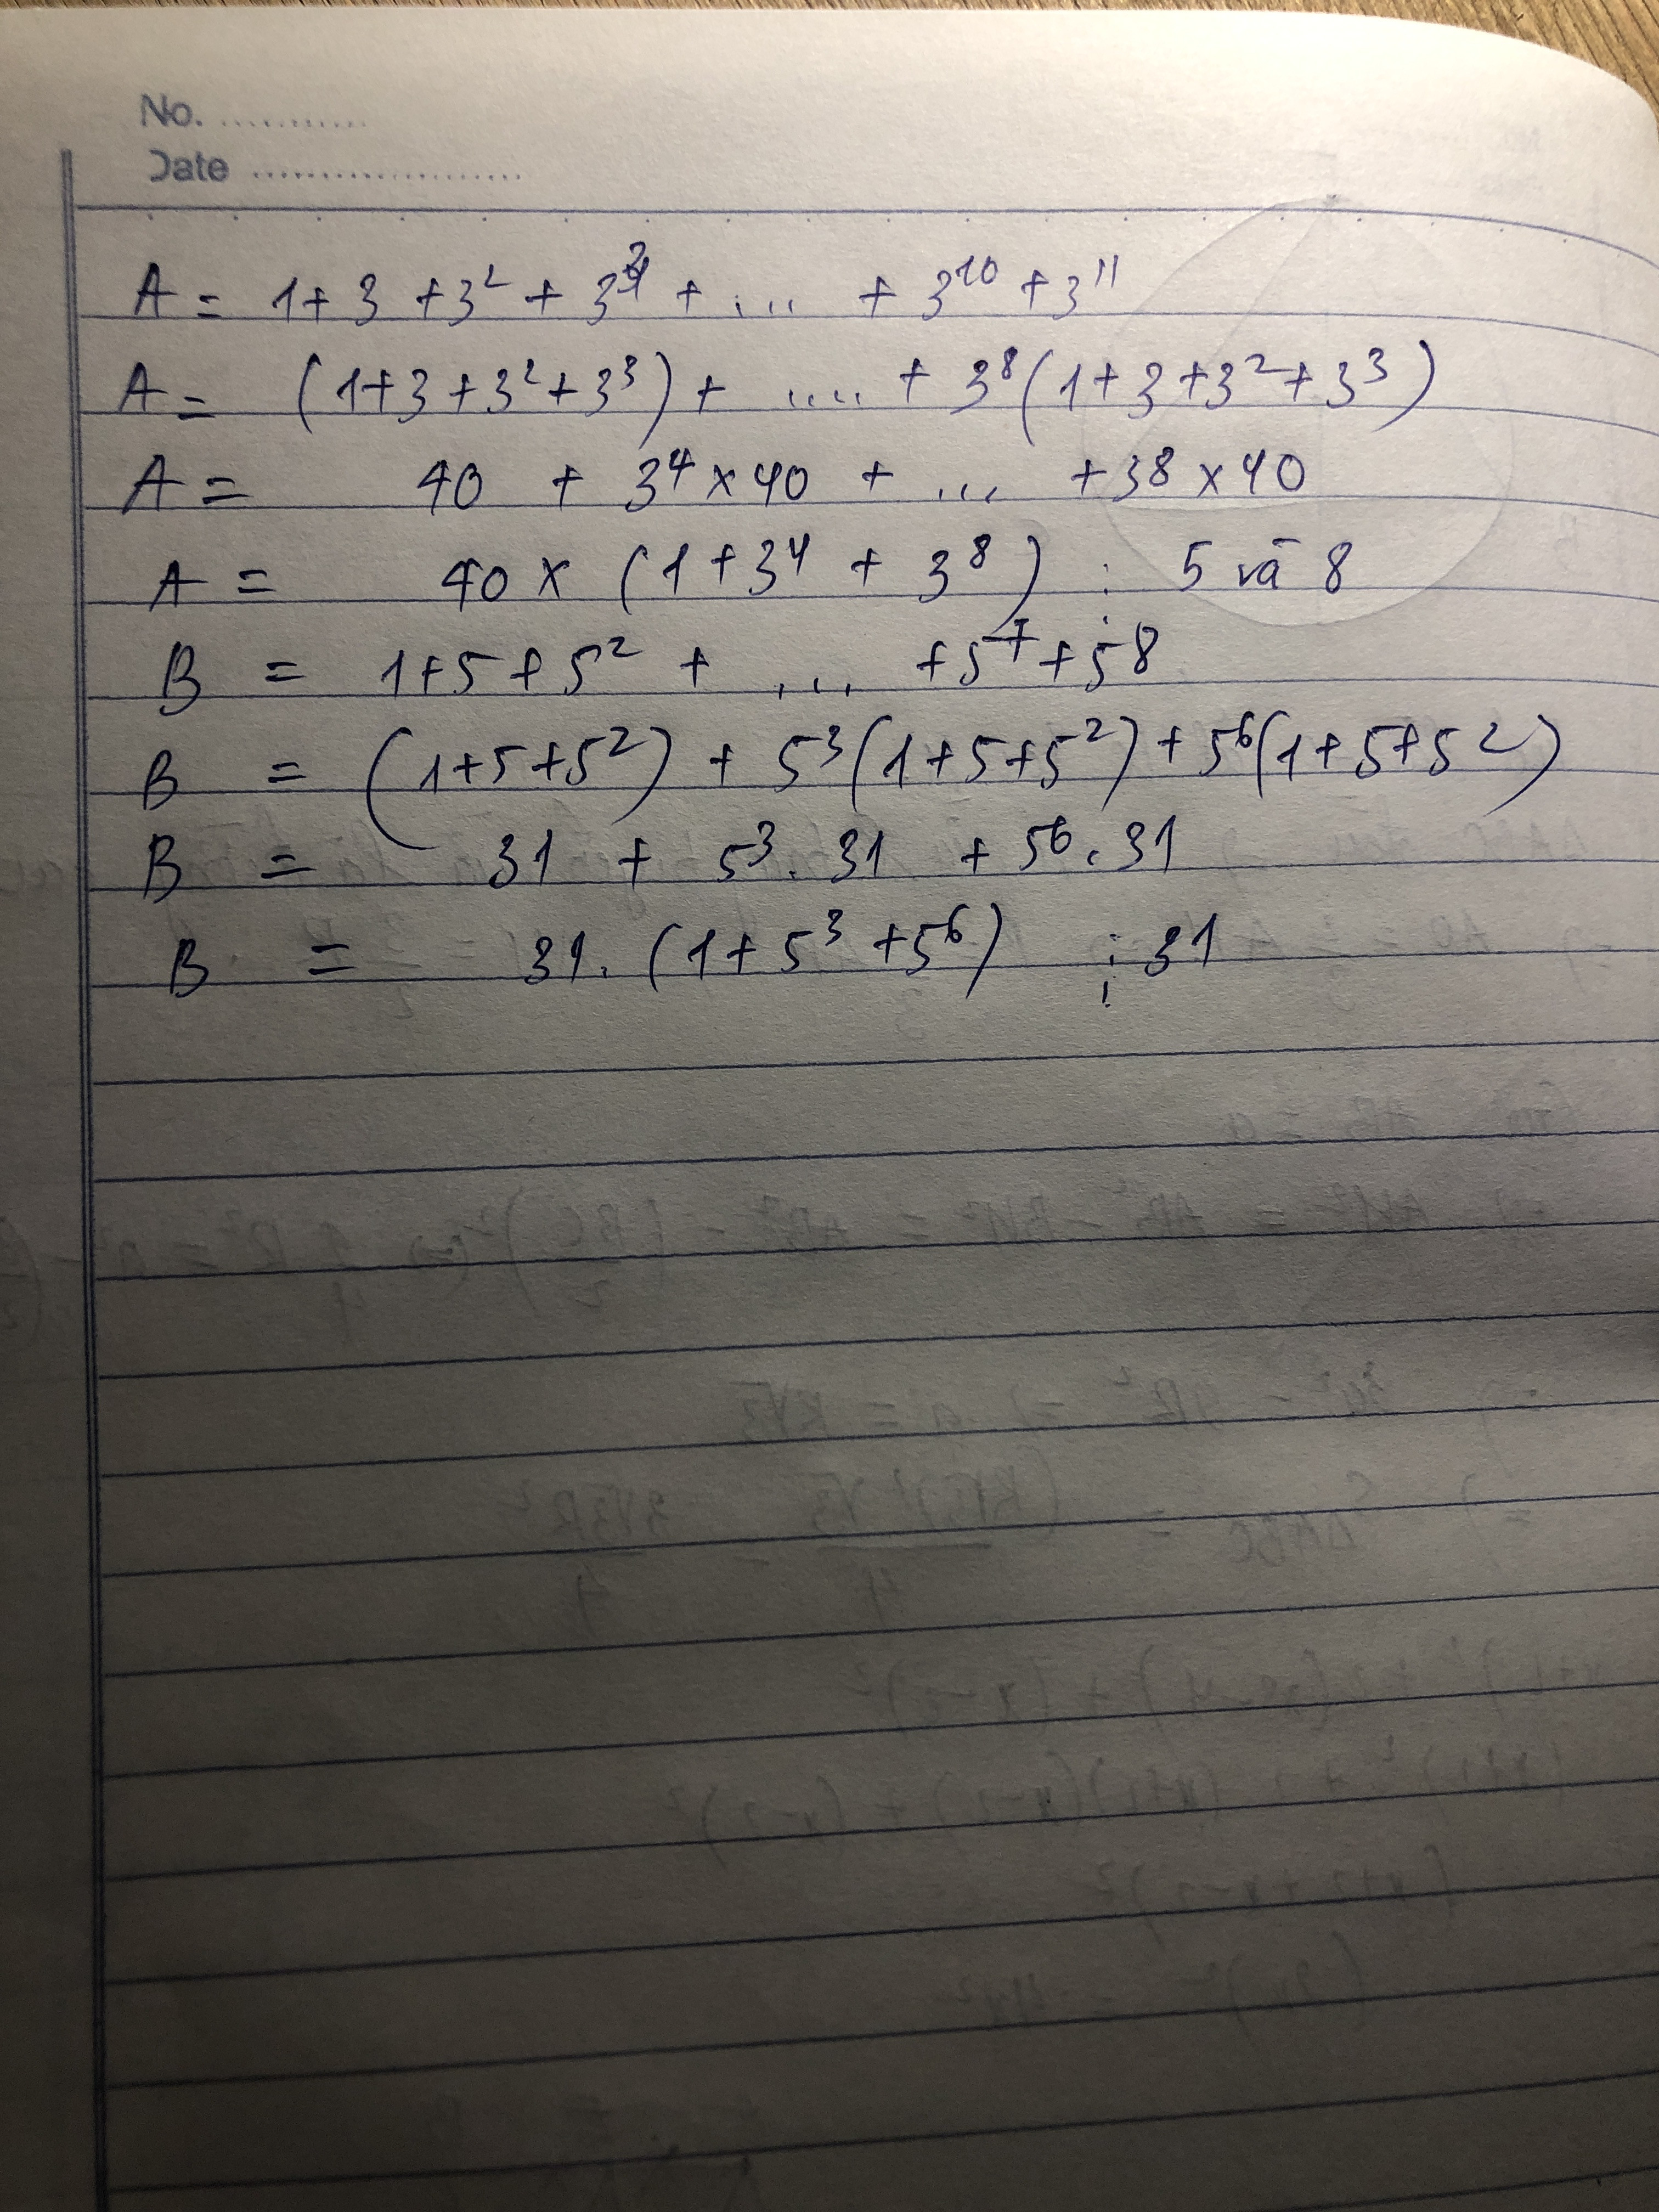 No. ...........
Date ....................
A = 1+3+3² + 3³ + .... + 3¹⁰ + 3¹¹
A = (1+3+3²+3³) + ..... + 3⁸(1+3+3²+3³)
A = 40 + 3⁴ × 40 + ... + 38 × 40
A = 40 × (1 + 3⁴ + 3⁸) ⋮ 5 và 8
B = 1+5+5² + .... +5⁷+58
B = (1+5+5²) + 5³(1+5+5²) + 5⁶(1+5+5²)
B = 31 + 5³. 31 + 5⁶. 31
B = 31. (1+5³+5⁶) ⋮ 31